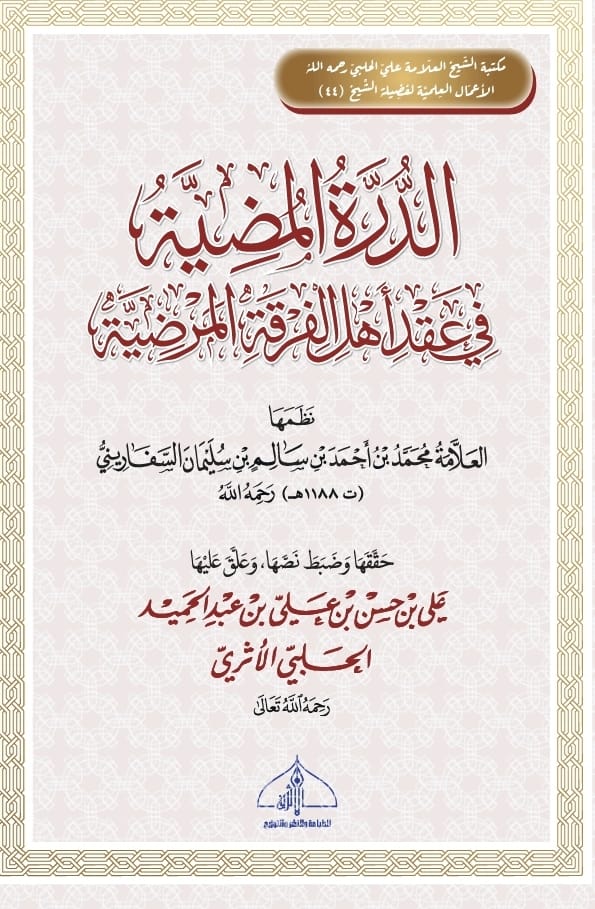 مكتبة الشيخ العلّامة علي الحلبي رحمه الله
الأعمال العلميّة لفضيلة الشيخ (٤٤)
الدُّرَّةُ المُضِيَّةُ
فِي عَقْدِ أَهْلِ الفِرْقَةِ المَرْضِيَّةِ
نَظَمَهَا
العَلَّامَةُ مُحَمَّدُ بْنُ أَحْمَدَ بْنِ سَالِمِ بْنِ سُلَيْمَانَ السَّفَارِينِيُّ
(ت ١١٨٨هـ) رَحِمَهُ اللَّهُ
حَقَّقَهَا وَضَبَطَ نَصَّهَا، وَعَلَّقَ عَلَيْهَا
عَلِي بْن حَسَن بْن عَلِيّ بْن عَبْدِ الحَمِيد
الحَلَبِيّ الأَثَرِيّ
رَحِمَهُ اللَّهُ تَعَالَى
الأثرية
للطباعة والنشر والتوزيع